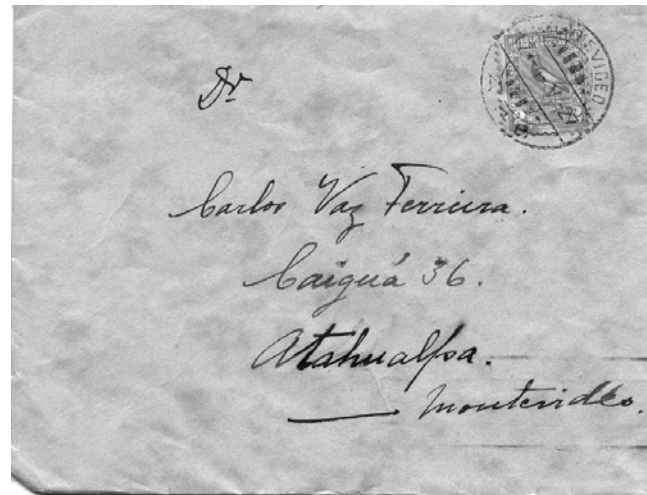 Dr.
Carlos Vaz Ferreira.
Caiguá 36.
Atahualpa.
Montevideo.
MONTEVIDEO